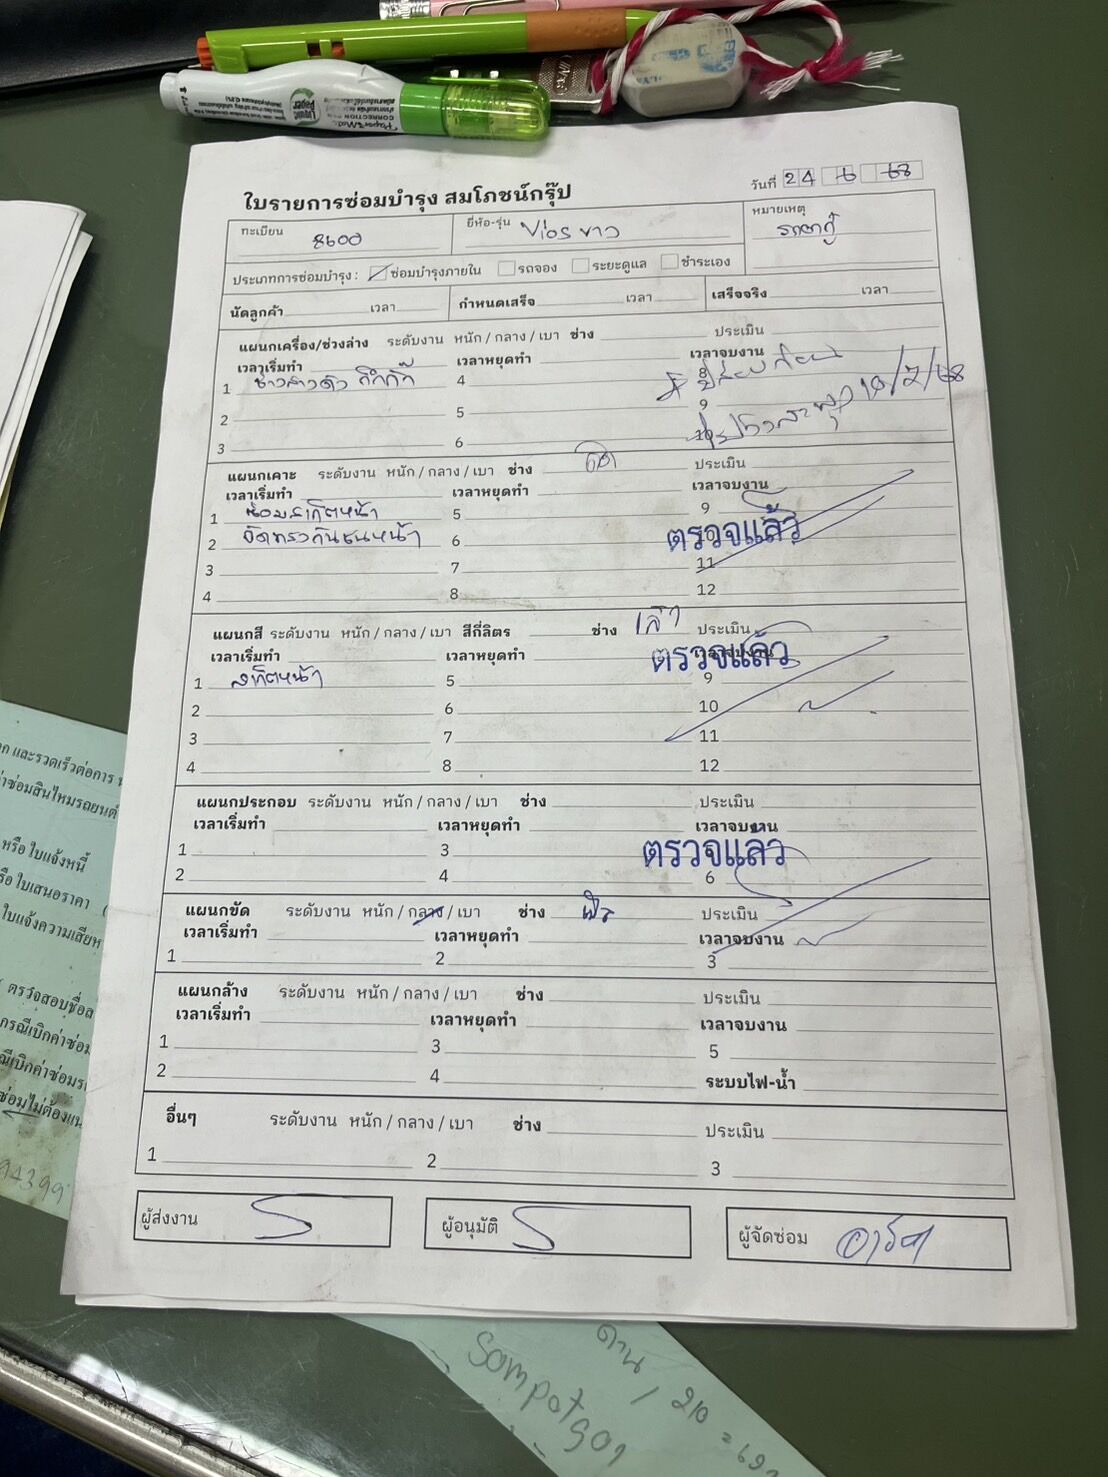 Liquid Paper
PaperMate
CORRECTION PEN
ใบรายการซ่อมบำรุง สมโภชน์กรุ๊ป
วันที่ 24 6 68
ทะเบียน 8600
ยี่ห้อ-รุ่น Vios ขาว
หมายเหตุ
ประเภทการซ่อมบำรุง : ซ่อมบำรุงภายใน รถจอง ระยะดูแล ชำระเอง
นัดลูกค้า เวลา กำหนดเสร็จ เวลา เสร็จจริง เวลา
แผนกเครื่อง/ช่วงล่าง ระดับงาน หนัก / กลาง / เบา ช่าง ประเมิน
เวลาเริ่มทำ เวลาหยุดทำ เวลาจบงาน
1 4 8
2 5 9
3 6 10
10/7/68
แผนกเคาะ ระดับงาน หนัก / กลาง / เบา ช่าง ประเมิน
เวลาเริ่มทำ เวลาหยุดทำ เวลาจบงาน
1 ซ่อมสเกิตหน้า 5 9
2 จัดทรงกันชนหน้า 6 10 ตรวจแล้ว
3 7 11
4 8 12
แผนกสี ระดับงาน หนัก / กลาง / เบา สีกี่ลิตร ช่าง ประเมิน
เวลาเริ่มทำ เวลาหยุดทำ เวลาจบงาน ตรวจแล้ว
1 สเกิตหน้า 5 9
2 6 10
3 7 11
4 8 12
แผนกประกอบ ระดับงาน หนัก / กลาง / เบา ช่าง ประเมิน
เวลาเริ่มทำ เวลาหยุดทำ เวลาจบงาน
1 3 ตรวจแล้ว
2 4 6
แผนกขัด ระดับงาน หนัก / กลาง / เบา ช่าง ประเมิน
เวลาเริ่มทำ เวลาหยุดทำ เวลาจบงาน
1 2 3
แผนกล้าง ระดับงาน หนัก / กลาง / เบา ช่าง ประเมิน
เวลาเริ่มทำ เวลาหยุดทำ เวลาจบงาน
1 3 5
2 4 ระบบไฟ-น้ำ
อื่นๆ ระดับงาน หนัก / กลาง / เบา ช่าง ประเมิน
1 2 3
ผู้ส่งงาน ผู้อนุมัติ ผู้จัดซ่อม
และรวดเร็วต่อการ
ค่าซ่อมสินไหมรถยนต์
หรือ ใบแจ้งหนี้
ใบเสนอราคา
ใบแจ้งความเสียห
ตรวจสอบชื่อ
กรณีเบิกค่าซ่อม
ซ่อมไม่ต้อง
94399